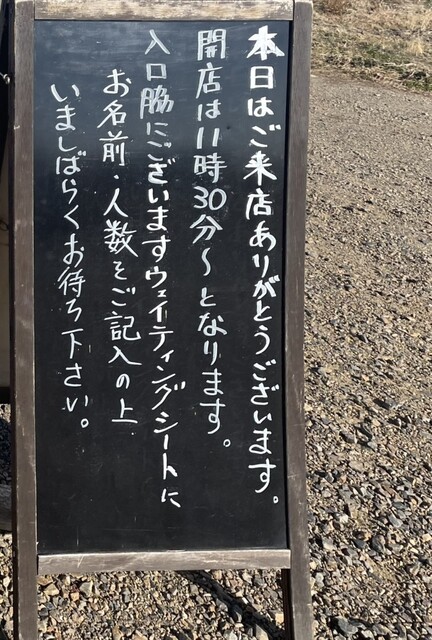 本日はご来店ありがとうございます。
開店は11時30分～となります。
入口脇にございますウェイティングシートに
お名前・人数をご記入の上
いましばらくお待ち下さい。